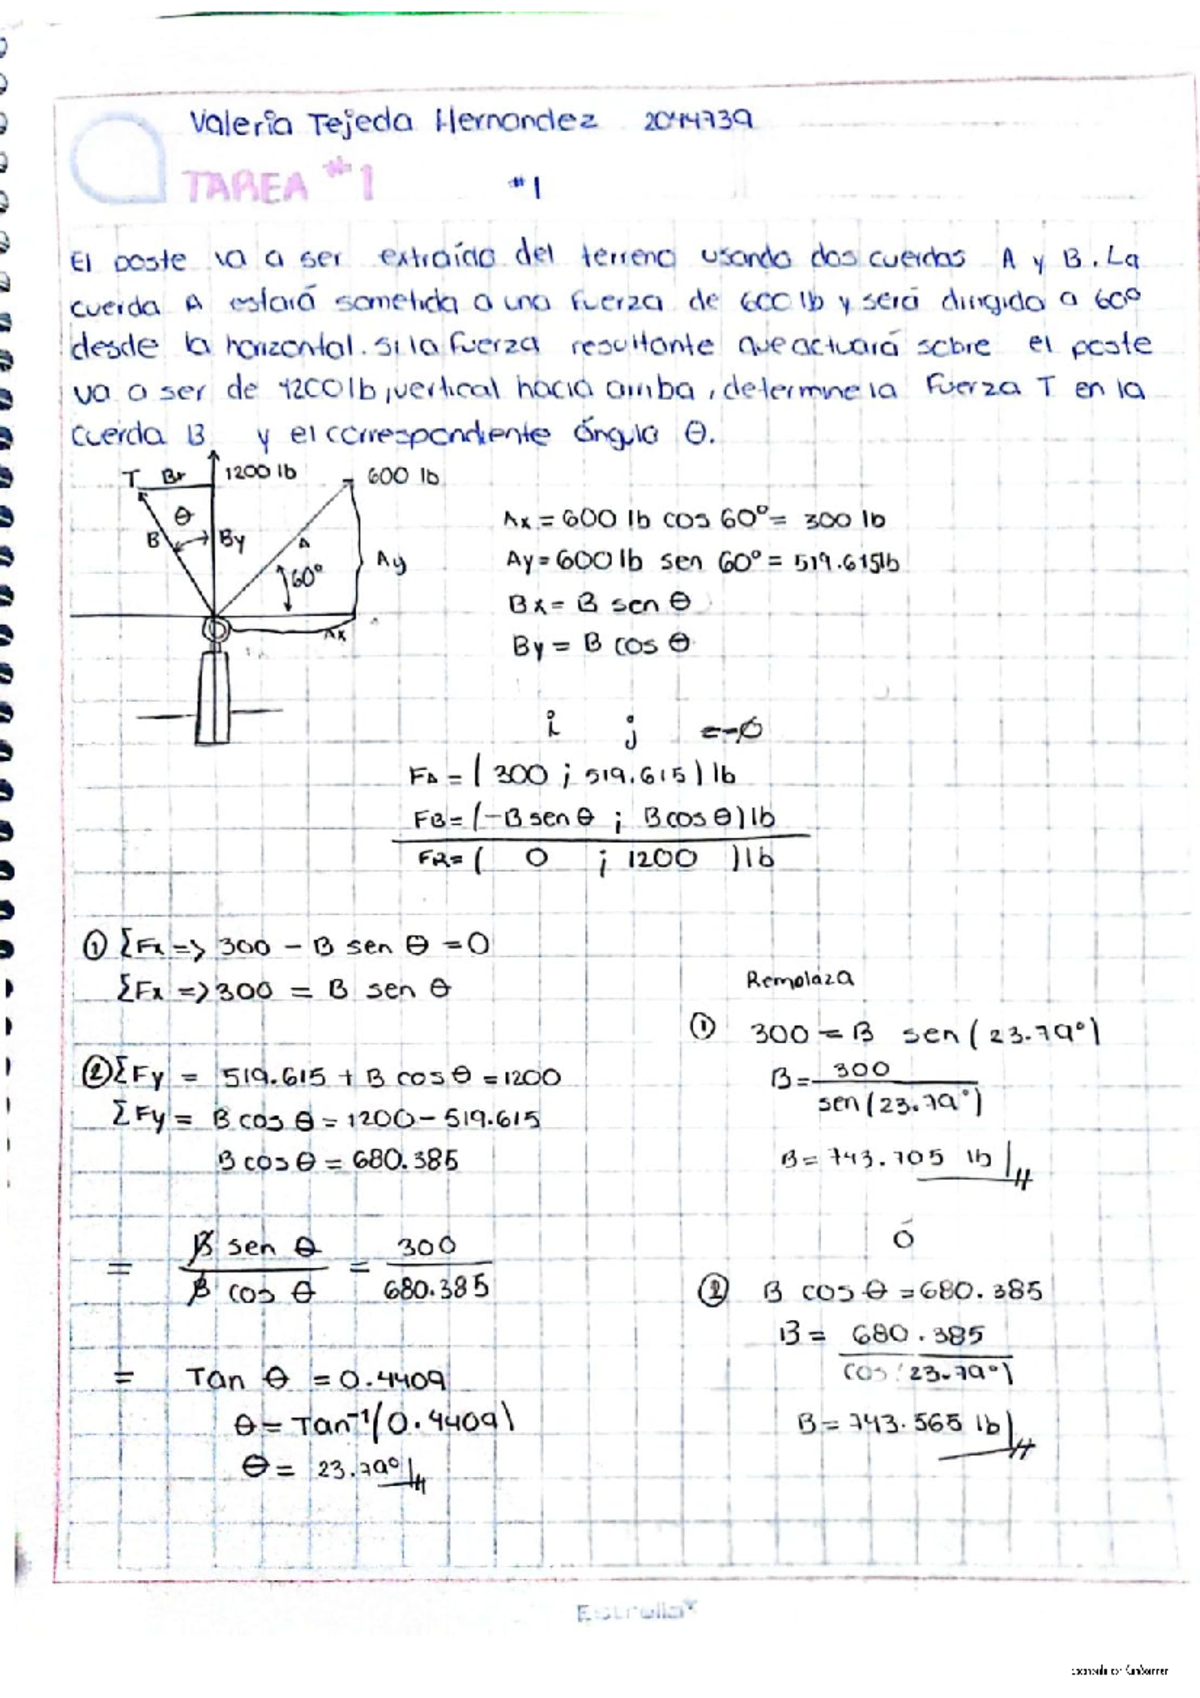 Valeria Tejeda Hernandez 2044739
TAREA #1 #1
El poste va a ser extraído del terreno usando dos cuerdas A y B. La
cuerda A estará sometida a una fuerza de 600 lb y será dirigida a 60°
desde la horizontal. Si la fuerza resultante que actuará sobre el poste
va a ser de 1200 lb, vertical hacia arriba, determine la fuerza T en la
cuerda B y el correspondiente ángulo θ.
T Bx 1200 lb 600 lb
θ
B By A Ay
60°
Ax
Ax = 600 lb cos 60° = 300 lb
Ay = 600 lb sen 60° = 519.615lb
Bx = B sen θ
By = B cos θ
i j
FA = ( 300 ; 519.615 ) lb
FB = (-B sen θ ; B cos θ) lb
FR = ( 0 ; 1200 ) lb
① ΣFx => 300 - B sen θ = 0
ΣFx => 300 = B sen θ
② ΣFy = 519.615 + B cos θ = 1200
ΣFy = B cos θ = 1200 - 519.615
B cos θ = 680.385
= B sen θ / B cos θ = 300 / 680.385
= Tan θ = 0.4409
θ = Tan⁻¹(0.4409)
θ = 23.79°
Remplaza
① 300 = B sen (23.79°)
B = 300 / sen (23.79°)
B = 743.705 lb
Ó
② B cos θ = 680.385
B = 680.385 / cos (23.79°)
B = 743.565 lb
Estrella
Escaneado con CamScanner